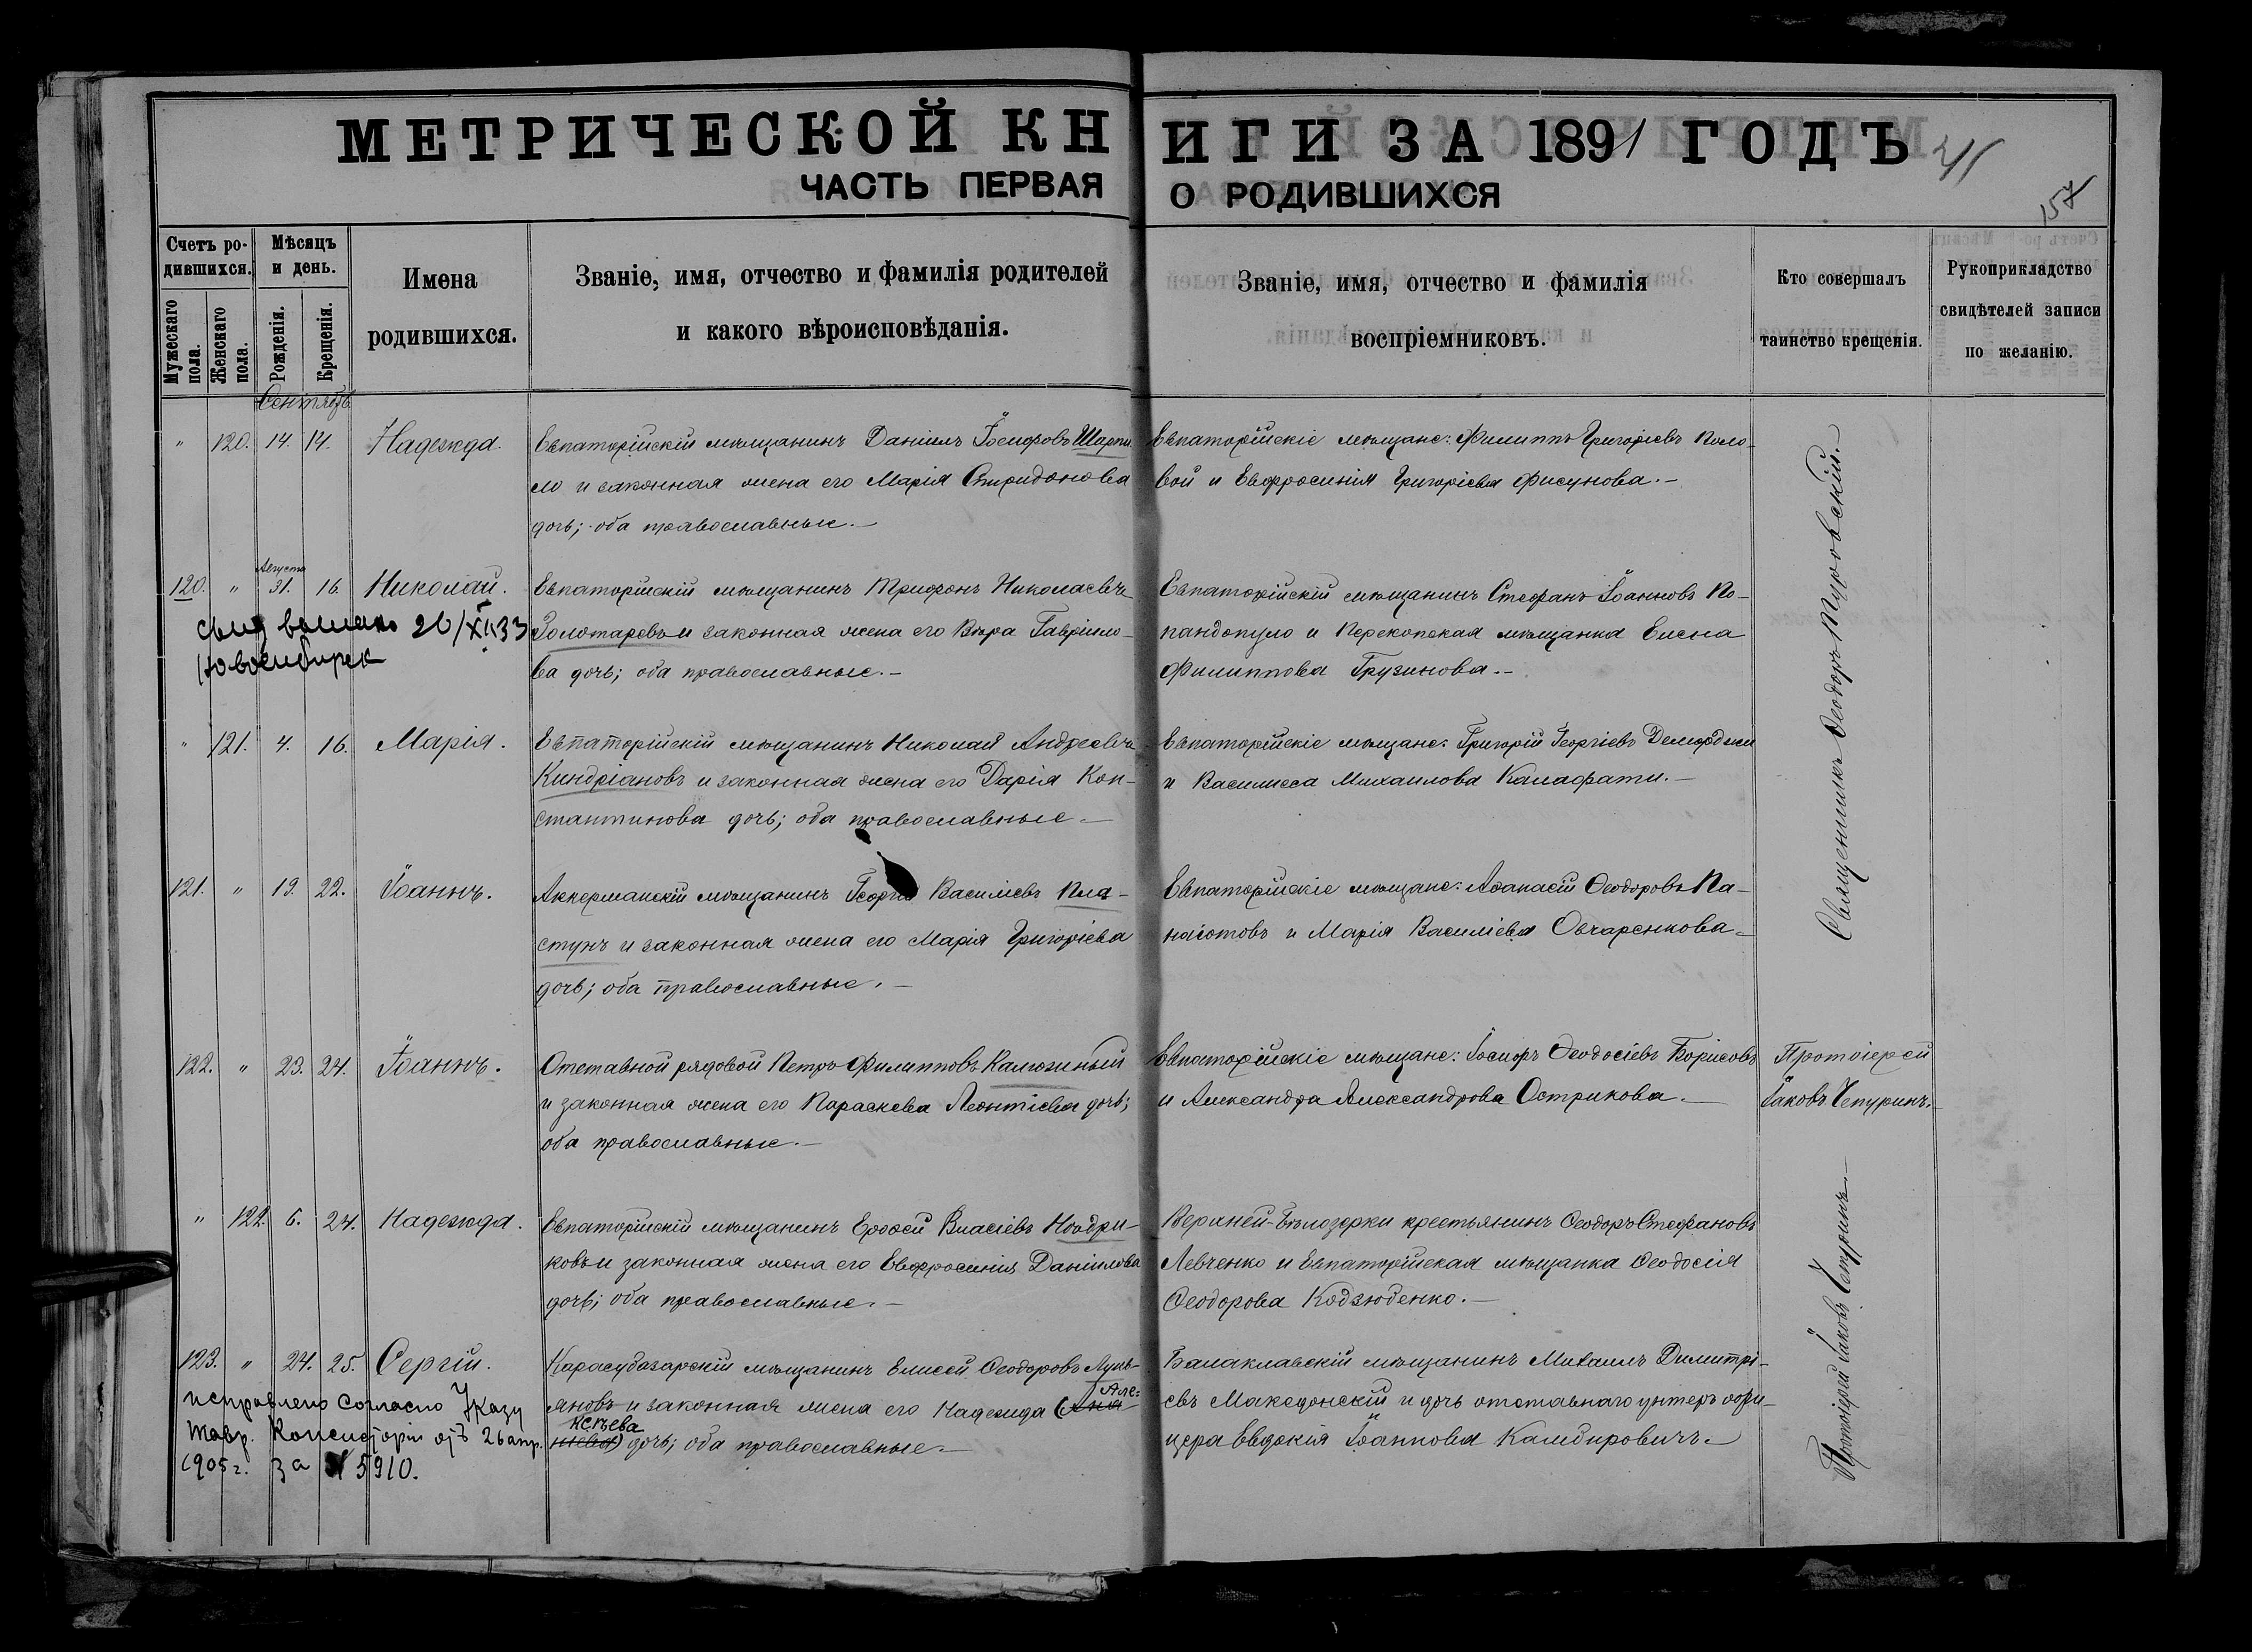 МЕТРИЧЕСКОЙ КНИГИ ЗА 1891 ГОДЪ
41
157
ЧАСТЬ ПЕРВАЯ О РОДИВШИХСЯ
Счетъ родившихся.
Мужескаго пола.
Женскаго пола.
Мѣсяцъ и день.
Рожденія.
Крещенія.
Имена родившихся.
Званіе, имя, отчество и фамилія родителей
и какого вѣроисповѣданія.
Званіе, имя, отчество и фамилія
воспріемниковъ.
Кто совершалъ
таинство крещенія.
Рукоприкладство
свидѣтелей записи
по желанію.
Сентябрь
" 120. 14. 14. Надежда.
Евпаторійскій мѣщанинъ Даніилъ Іосифовъ Шарпи
ло и законная жена его Марія Спиридонова
дочь; оба православные.–
Евпаторійскіе мѣщане: Филиппъ Григоріевъ Поло-
вой и Евфросинія Григоріева Фисунова.–
120. " Августа 31. 16. Николай.
20/XII 33
Новосибирск
Евпаторійскій мѣщанинъ Трифонъ Николаевъ
Золотаревъ и законная жена его Вѣра Гавріило-
ва дочь; оба православные.–
Евпаторійскій мѣщанинъ Стефанъ Іоанновъ По-
пандопуло и Перекопская мѣщанка Елена
Филиппова Грузинова.–
" 121. 4. 16. Марія.
Евпаторійскій мѣщанинъ Николай Андреевъ
Киндріановъ и законная жена его Дарія Кон-
стантинова дочь; оба православные.–
Евпаторійскіе мѣщане: Григорій Георгіевъ Демерджи
и Василисса Михаилова Калафати.–
121. " 19. 22. Іоаннъ.
Аккерманскій мѣщанинъ Георгій Василіевъ Пла-
стунъ и законная жена его Марія Григоріева
дочь; оба православные.–
Евпаторійскіе мѣщане: Аѳанасій Ѳеодоровъ Па-
наіотовъ и Марія Василіева Овчаренкова.–
Священникъ Ѳеодоръ Туровскій.–
122. " 23. 24. Іоаннъ.
Отставной рядовой Петръ Филипповъ Калюжный
и законная жена его Параскева Леонтіева дочь;
оба православные.–
Евпаторійскіе мѣщане: Іосифъ Ѳеодосіевъ Борисовъ
и Александра Александрова Острикова.–
Протоіерей
Іаковъ Чепуринъ.–
" 122. 6. 24. Надежда.
Евпаторійскій мѣщанинъ Ероѳей Власіевъ
ковъ и законная жена его Евфросинія Даніилова
дочь; оба православные.–
Верхней-Бѣлозерки крестьянинъ Ѳеодоръ Стефановъ
Левченко и Евпаторійская мѣщанка Ѳеодосія
Ѳеодорова Кодзюбенко.–
123. " 24. 25. Сергій.
исправлено согласно Указу
Тавр. Консисторіи отъ 26 апр.
1905 г. за № 5910.
Карасубазарскій мѣщанинъ Елисей Ѳеодоровъ Лукь-
яновъ и законная жена его Надежда (Ана Але-
ніева) ксѣева дочь; оба православные.–
Балаклавскій мѣщанинъ Михаилъ Димитрі-
евъ Македонскій и дочь отставнаго унтеръ офи-
цера Евдокія Іоаннова Камбировичъ.–
Протоіерей Іаковъ Чепуринъ.–